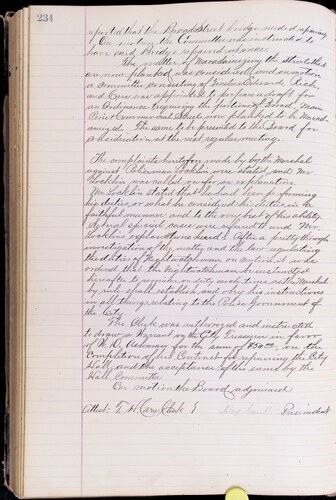 234
reported that the Broad Street bridge needed repairing
On motion the Committee was instructed to
have said Bridge repaired at once.
The matter of Macadamizing the Streets that
are now planked was considered and on motion
a Committee consisting of Trustees Rich
and Carr was appointed to prepare a draft for
an Ordinance requiring the portions of Broad, Main,
Pine & Commercial Streets now planked to be Macad-
amized. The same to be presented to the Board for
consideration at the next regular meeting.
The complaints heretofore made by the City Marshal
against Policeman Locklin were stated and Mr
Locklin was called on for an explanation.
Mr. Locklin stated that he had been performing
his duties, or what he considered his duties in a
faithful manner and to the very best of his ability.
Several special cases were referred to and Mr.
Locklin's explanations heard. After a pretty through
investigation of the matter and the law regulating
the duties of Nightwatchman on motion it was
ordered that the Nightwatchman be instructed
hereafter to appoint on duty such times as the Marshal
by rule shall establish and obey his instructions
in all things relating to the Police Government of
the City.
The Clerk was authorized and instructed
to draw a Warrant on the City Treasurer in favor
of for the sum of $50.00 on the
Completion of his Contract for repairing the City
Hall and the acceptance of the same by the
Hall Committee.
On motion the Board adjourned
Attest: T. H. Carr Clerk President